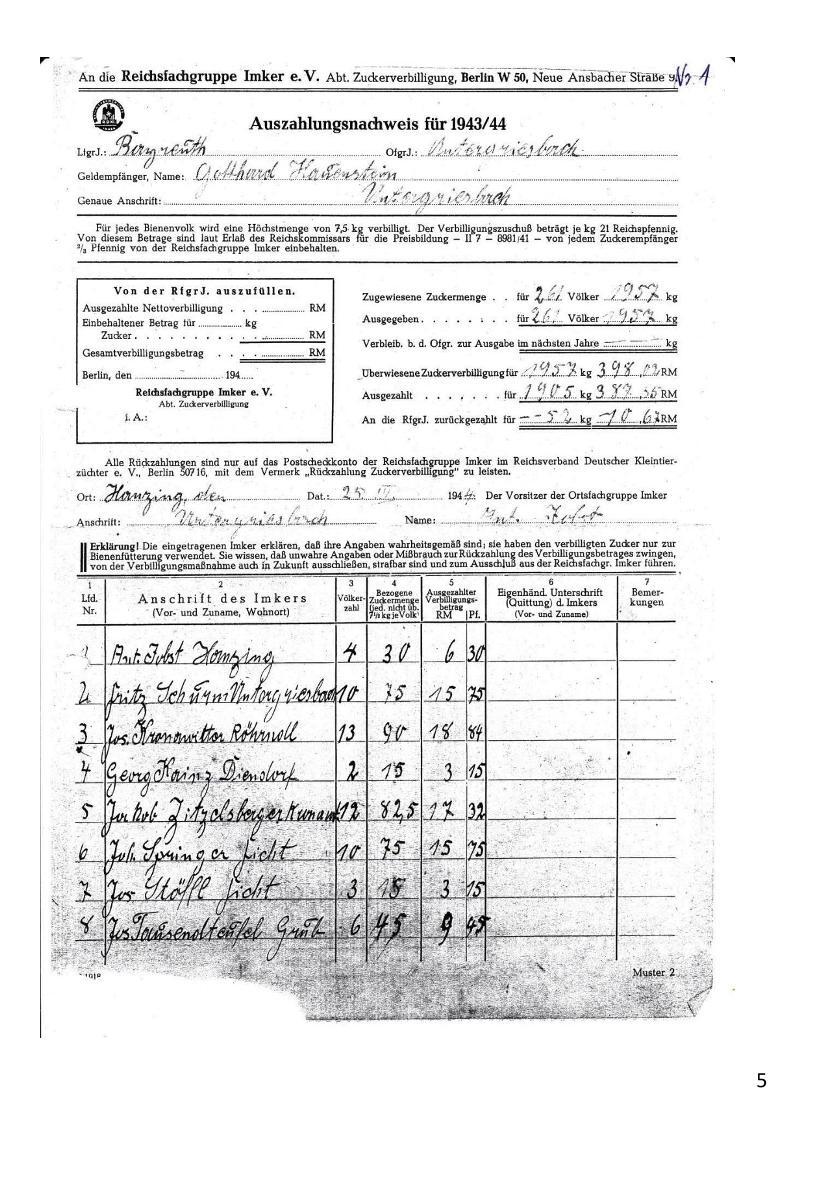 An die Reichsfachgruppe Imker e. V. Abt. Zuckerverbilligung, Berlin W 50, Neue Ansbacher Straße 9
No 1
Auszahlungsnachweis für 1943/44
LfgrJ.: Bayreuth OfgrJ.: Untergriesbach
Geldempfänger, Name: Gotthard Hauenstein
Genaue Anschrift: Untergriesbach
Für jedes Bienenvolk wird eine Höchstmenge von 7,5 kg verbilligt. Der Verbilligungszuschuß beträgt je kg 21 Reichspfennig.
Von diesem Betrage sind laut Erlaß des Reichskommissars für die Preisbildung – II 7 – 8981/41 – von jedem Zuckerempfänger
²/₃ Pfennig von der Reichsfachgruppe Imker einbehalten.
Von der RfgrJ. auszufüllen.
Ausgezahlte Nettoverbilligung . . . RM
Einbehaltener Betrag für kg
Zucker . . . . . . . . . . RM
Gesamtverbilligungsbetrag . . . RM
Berlin, den 194
Reichsfachgruppe Imker e. V.
Abt. Zuckerverbilligung
i. A.:
Zugewiesene Zuckermenge . . für 261 Völker 1957 kg
Ausgegeben . . . . . . . . für 261 Völker 1957 kg
Verbleib. b. d. Ofgr. zur Ausgabe im nächsten Jahre — kg
Überwiesene Zuckerverbilligung für 1957 kg 398, RM
Ausgezahlt . . . . . . . für 1905 kg 387,35 RM
An die RfgrJ. zurückgezahlt für -- 52 kg -10,67 RM
Alle Rückzahlungen sind nur auf das Postscheckkonto der Reichsfachgruppe Imker im Reichsverband Deutscher Kleintier-
züchter e. V., Berlin 50716, mit dem Vermerk „Rückzahlung Zuckerverbilligung" zu leisten.
Ort: Hanzing, den Dat.: 25 III. 1944 Der Vorsitzer der Ortsfachgruppe Imker
Anschrift: Untergriesbach Name: Ant. Jobst
Erklärung! Die eingetragenen Imker erklären, daß ihre Angaben wahrheitsgemäß sind; sie haben den verbilligten Zucker nur zur
Bienenfütterung verwendet. Sie wissen, daß unwahre Angaben oder Mißbrauch zur Rückzahlung des Verbilligungsbetrages zwingen,
von der Verbilligungsmaßnahme auch in Zukunft ausschließen, strafbar sind und zum Ausschluß aus der Reichsfachgr. Imker führen.
1 2 3 4 5 6 7
Lfd. Nr. Anschrift des Imkers (Vor- und Zuname, Wohnort) Völker-zahl Bezogene Zuckermenge (jed. nicht üb. 7½ kg je Volk) Ausgezahlter Verbilligungs-betrag RM Pf. Eigenhänd. Unterschrift (Quittung) d. Imkers (Vor- und Zuname) Bemer-kungen
1 Ant. Jobst Hanzing 4 30 6 30
2 Fritz Schurm Untergriesbach 10 75 15 75
3 Jos. Kronawitter Röhrndl 13 90 18 84
4 Georg Kainz Diendorf 2 15 3 15
5 Jakob Zitzelsberger 12 82,5 17 32
6 Joh. Springer Ficht 10 75 15 75
7 Jos Stößl Ficht 3 15 3 15
8 Jos Tausendteufel Grub 6 45 9 45
Muster 2
5